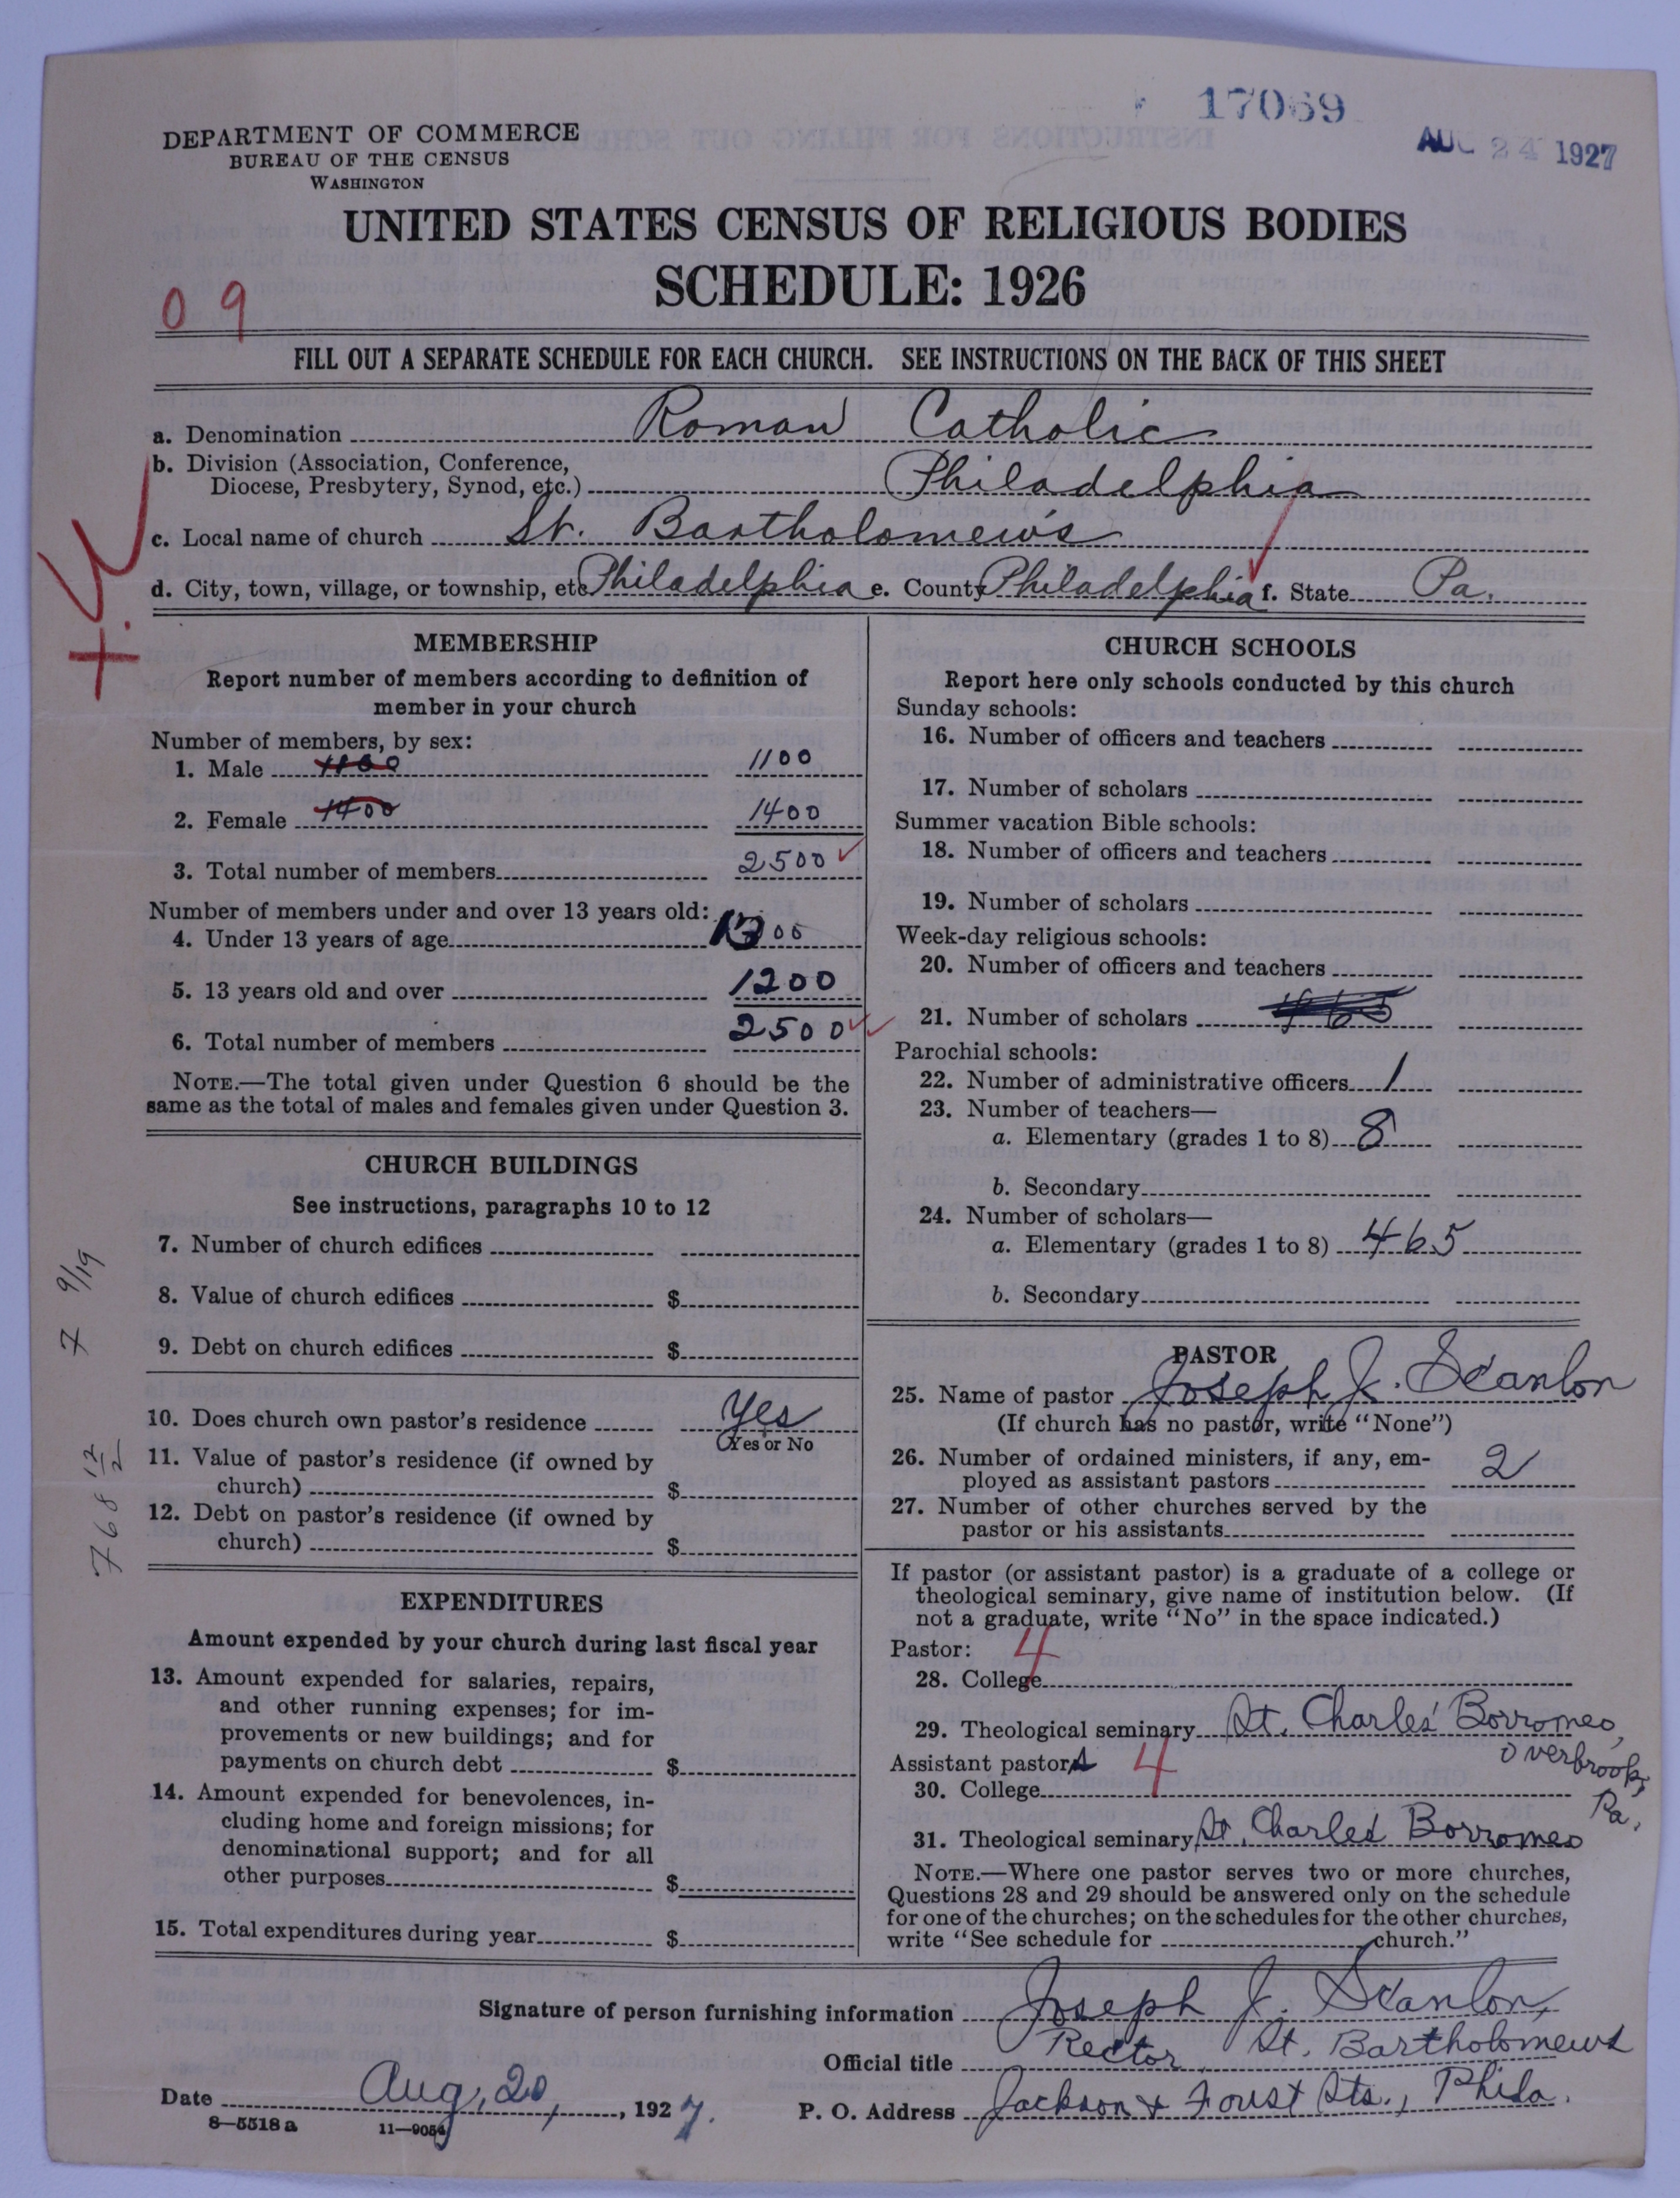 17069
AUG 24 1927
DEPARTMENT OF COMMERCE
BUREAU OF THE CENSUS
WASHINGTON
UNITED STATES CENSUS OF RELIGIOUS BODIES
SCHEDULE: 1926
09
FILL OUT A SEPARATE SCHEDULE FOR EACH CHURCH. SEE INSTRUCTIONS ON THE BACK OF THIS SHEET
a. Denomination Roman Catholic
b. Division (Association, Conference,
Diocese, Presbytery, Synod, etc.) Philadelphia
c. Local name of church St. Bartholomew's
d. City, town, village, or township, etc Philadelphia e. County Philadelphia f. State Pa.
MEMBERSHIP
Report number of members according to definition of
member in your church
Number of members, by sex:
1. Male 1100 1100
2. Female 1400 1400
3. Total number of members 2500
Number of members under and over 13 years old:
4. Under 13 years of age 1300
5. 13 years old and over 1200
6. Total number of members 2500
NOTE.—The total given under Question 6 should be the
same as the total of males and females given under Question 3.
CHURCH BUILDINGS
See instructions, paragraphs 10 to 12
7. Number of church edifices
8. Value of church edifices $
9. Debt on church edifices $
10. Does church own pastor's residence Yes
Yes or No
11. Value of pastor's residence (if owned by
church) $
12. Debt on pastor's residence (if owned by
church) $
EXPENDITURES
Amount expended by your church during last fiscal year
13. Amount expended for salaries, repairs,
and other running expenses; for im-
provements or new buildings; and for
payments on church debt $
14. Amount expended for benevolences, in-
cluding home and foreign missions; for
denominational support; and for all
other purposes $
15. Total expenditures during year $
7 9/19
768 12/2
CHURCH SCHOOLS
Report here only schools conducted by this church
Sunday schools:
16. Number of officers and teachers
17. Number of scholars
Summer vacation Bible schools:
18. Number of officers and teachers
19. Number of scholars
Week-day religious schools:
20. Number of officers and teachers
21. Number of scholars 465
Parochial schools:
22. Number of administrative officers 1
23. Number of teachers—
a. Elementary (grades 1 to 8) 8
b. Secondary
24. Number of scholars—
a. Elementary (grades 1 to 8) 465
b. Secondary
PASTOR
25. Name of pastor Joseph J. Scanlon
(If church has no pastor, write "None")
26. Number of ordained ministers, if any, em-
ployed as assistant pastors 2
27. Number of other churches served by the
pastor or his assistants
If pastor (or assistant pastor) is a graduate of a college or
theological seminary, give name of institution below. (If
not a graduate, write "No" in the space indicated.)
Pastor: 4
28. College
29. Theological seminary St. Charles' Borromeo,
Overbrook,
Pa.
Assistant pastors 4
30. College
31. Theological seminary St. Charles Borromeo
NOTE.—Where one pastor serves two or more churches,
Questions 28 and 29 should be answered only on the schedule
for one of the churches; on the schedules for the other churches,
write "See schedule for church."
Signature of person furnishing information Joseph J. Scanlon,
Official title Rector St. Bartholomews
Date Aug, 20, 1927. P. O. Address Jackson & Foust Sts., Phila.
8—5518a 11—9054